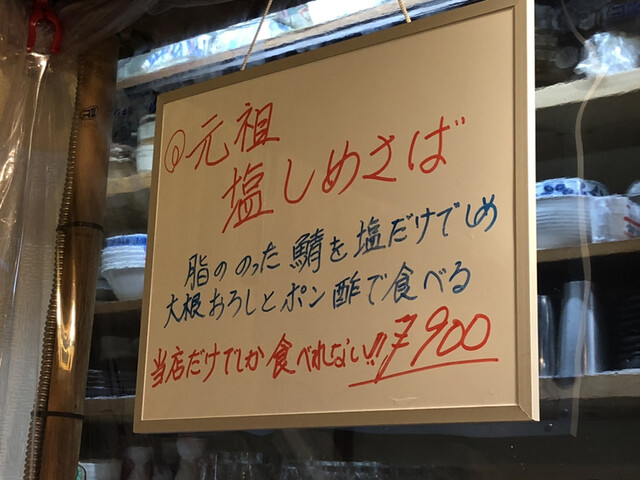 元祖
塩しめさば
脂ののった鯖を塩だけでしめ
大根おろしとポン酢で食べる
当店だけでしか食べれない!! ¥900